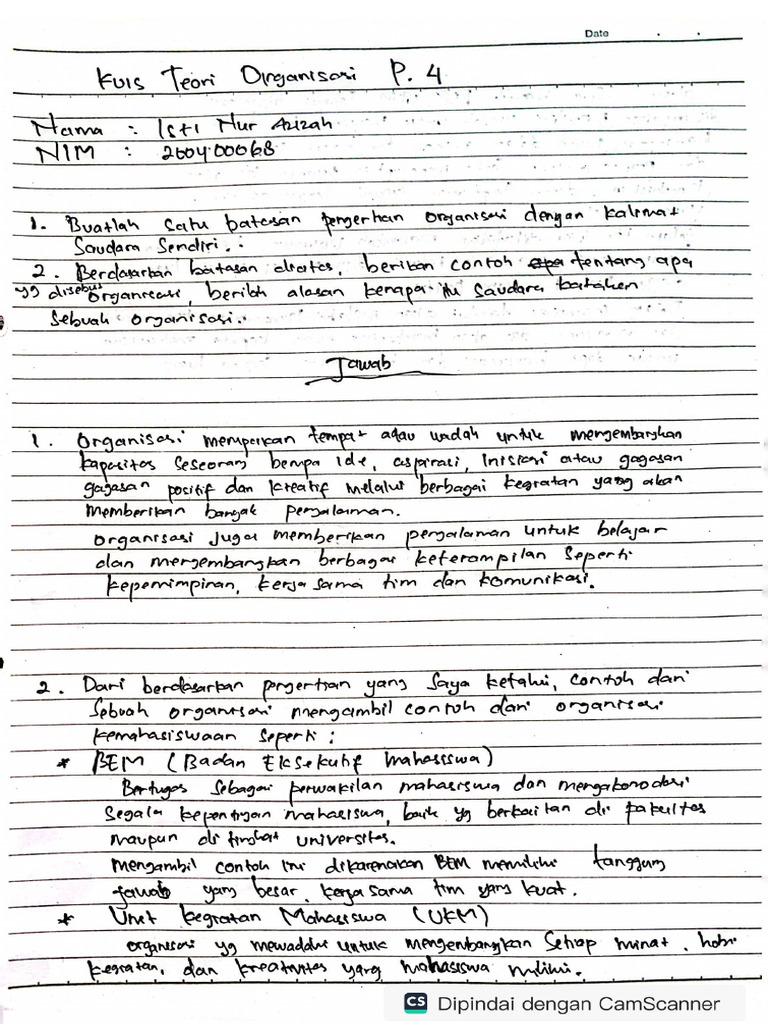 Date . .
Kuis Teori Organisasi P. 4
Nama : Isti Nur Azizah
NIM : 200400068
1. Buatlah satu batasan pengertian organisasi dengan kalimat
Saudara Sendiri.
2. Berdasarkan batasan diatas, berikan contoh apa tentang apa
yg disebut organisasi, berilah alasan kenapa itu saudara katakan
Sebuah organisasi.
Jawab
1. Organisasi merupakan tempat atau wadah untuk mengembangkan
kapasitas seseorang berupa ide, aspirasi, inisiasi atau gagasan
gagasan positif dan kreatif melalui berbagai kegiatan yang akan
memberikan banyak pengalaman.
Organisasi juga memberikan pengalaman untuk belajar
dan mengembangkan berbagai keterampilan seperti
kepemimpinan, kerja sama tim dan komunikasi.
2. Dari berdasarkan pengertian yang saya ketahui, contoh dari
Sebuah organisasi mengambil contoh dari organisasi
kemahasiswaan seperti :
* BEM (Badan Eksekutif Mahasiswa)
Bertugas sebagai perwakilan mahasiswa dan mengakomodasi
Segala kepentingan mahasiswa, baik yg berkaitan di fakultas
maupun di tingkat universitas.
Mengambil contoh ini dikarenakan BEM memiliki tanggung
jawab yang besar, kerja sama tim yang kuat.
* Unit kegiatan Mahasiswa (UKM)
organisasi yg mewaddahi untuk mengembangkan setiap minat, hobi
kegiatan, dan kreativitas yang mahasiswa miliki.
CS Dipindai dengan CamScanner